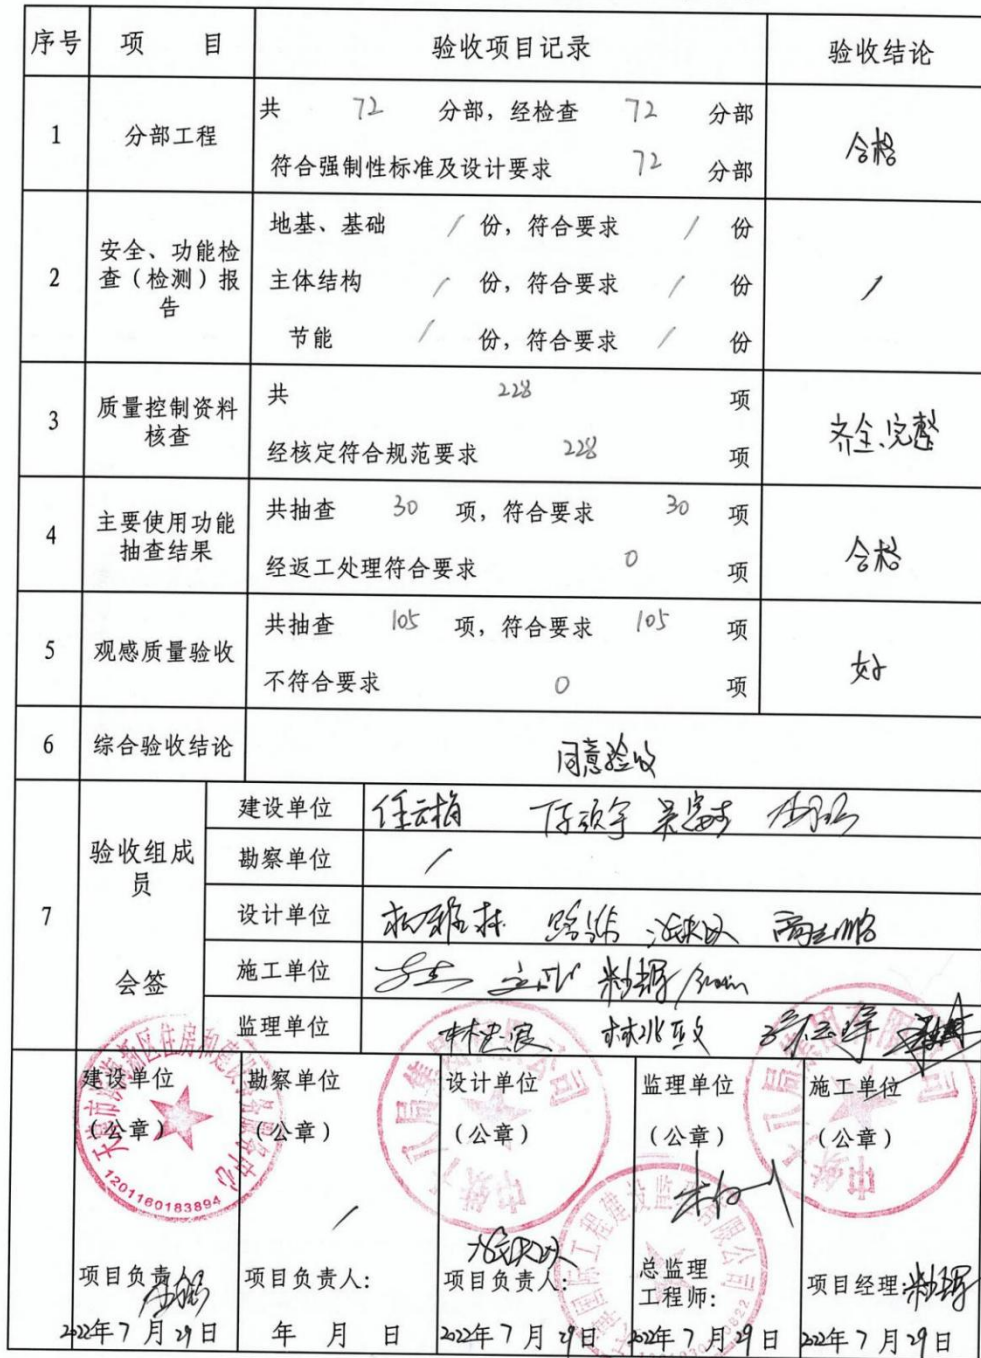 序号 项 目 验收项目记录 验收结论
1 分部工程 共 72 分部，经检查 72 分部
符合强制性标准及设计要求 72 分部
合格
2 安全、功能检查（检测）报告
地基、基础 / 份，符合要求 / 份
主体结构 / 份，符合要求 / 份
节能 / 份，符合要求 / 份
/
3 质量控制资料核查
共 228 项
经核定符合规范要求 228 项
齐全、完整
4 主要使用功能抽查结果
共抽查 30 项，符合要求 30 项
经返工处理符合要求 0 项
合格
5 观感质量验收
共抽查 105 项，符合要求 105 项
不符合要求 0 项
好
6 综合验收结论 同意验收
7 验收组成员
会签
建设单位 任云梅
勘察单位 /
设计单位
施工单位
监理单位
建设单位 勘察单位 设计单位 监理单位 施工单位
（公章） （公章） （公章） （公章） （公章）
1201160183894
/
项目负责人 项目负责人： 项目负责人： 总监理工程师： 项目经理：
2022年7月29日 年 月 日 2022年7月29日 2022年7月29日 2022年7月29日